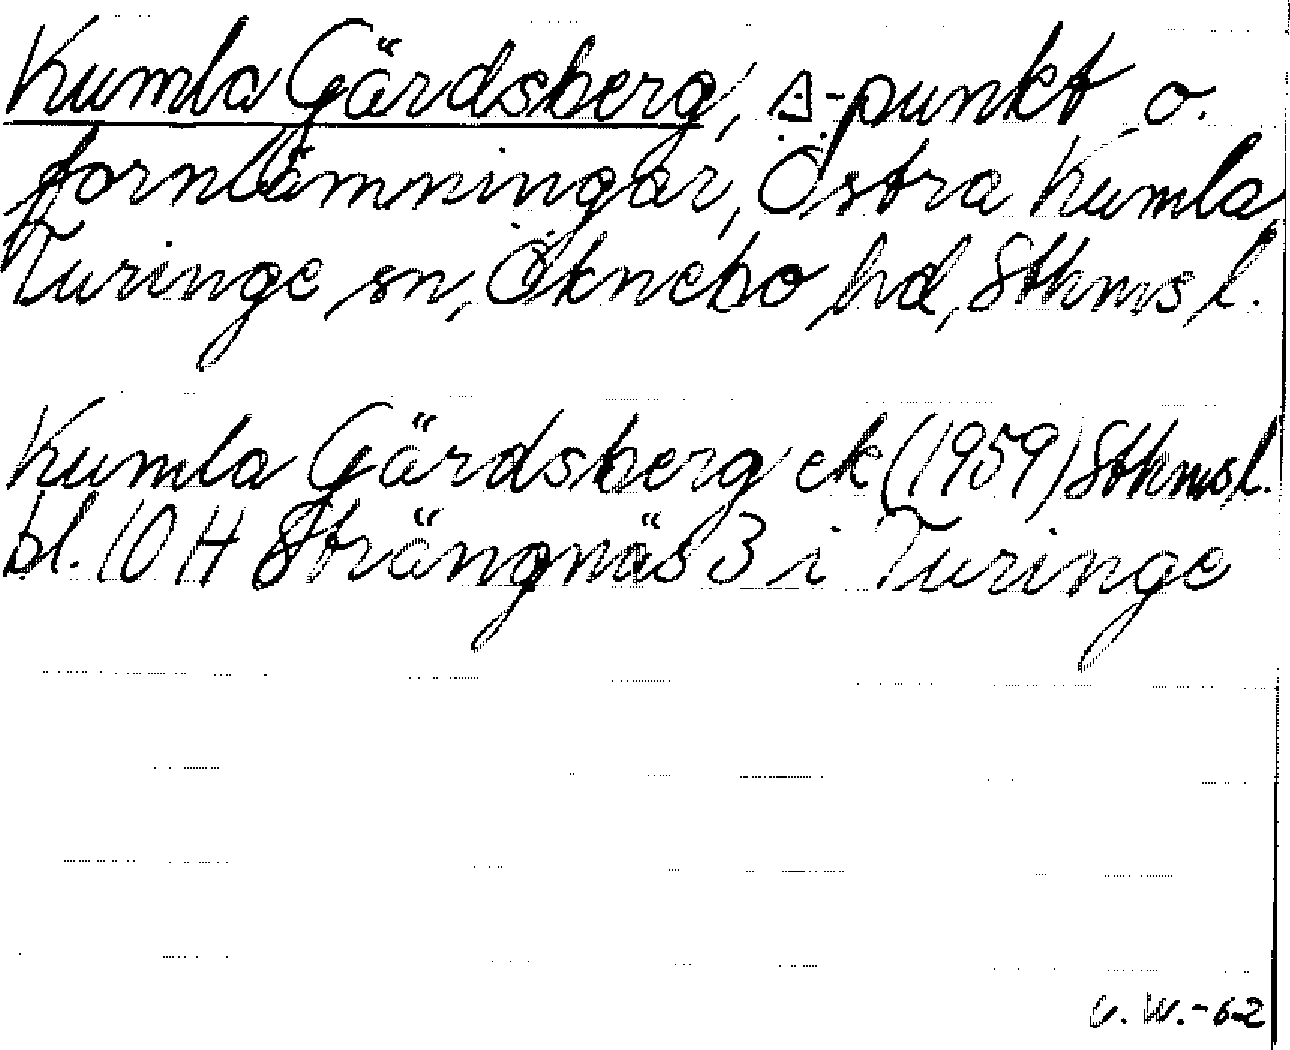 Kumla Gärdsberg, △-punkt o.
fornlämningar, Östra Kumla,
Turinge sn, Öknebo hd, Sthms l.
Kumla Gärdsberg ek (1959) Sthms l.
bl. 10 H Strängnäs 3 i Turinge
U.W.-62